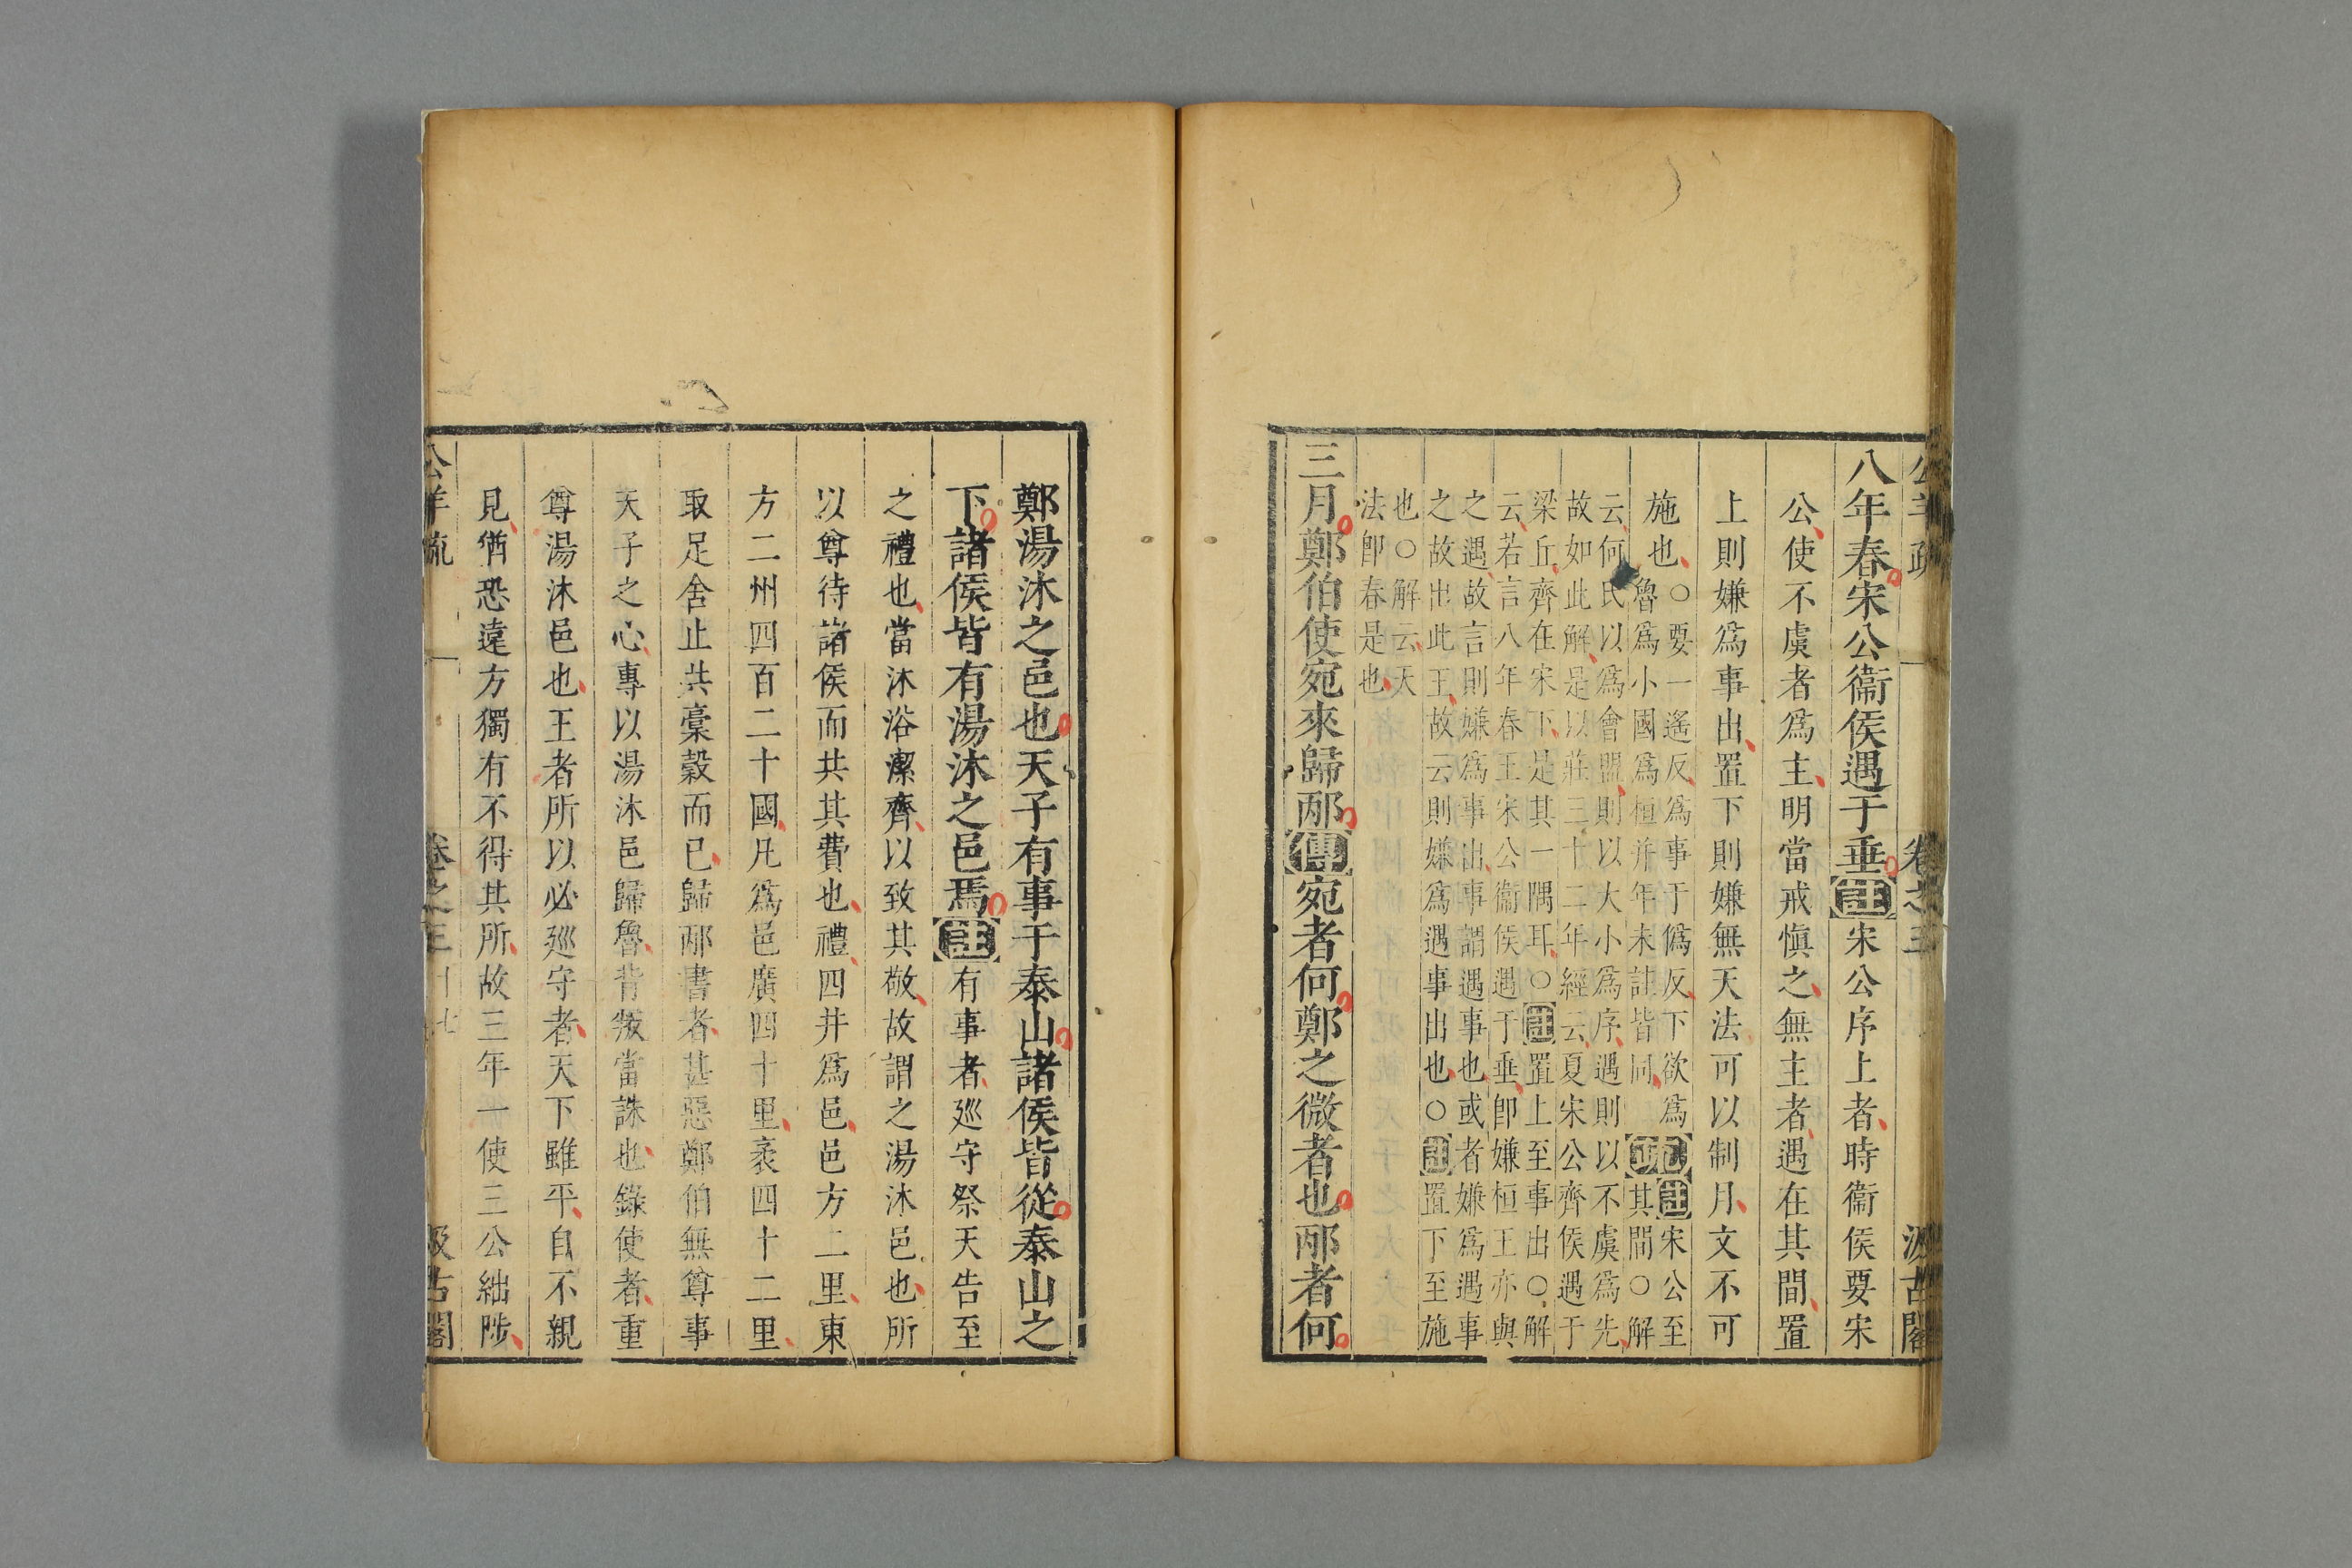 公羊疏 卷之三 汲古閣
八年春宋公衞侯遇于垂註宋公序上者時衞侯要宋
公使不虞者爲主明當戒愼之無主者遇在其間置
上則嫌爲事出置下則嫌無天法可以制月文不可
施也○要一遙反爲事于僞反下欲爲
魯爲小國爲桓幷年末註皆同
疏註宋公至
其間○解
云何氏以爲會盟則以大小爲序遇則以不虞爲先
故如此解是以莊三十二年經云夏宋公齊侯遇于
梁丘齊在宋下是其一隅耳○註置上至事出○解
云若言八年春王宋公衞侯遇于垂卽嫌桓王亦與
之遇故言則嫌爲事出事謂遇事也或者嫌爲遇事
之故出此王故云則嫌爲遇事出也○註置下至施
也○解云天
法卽春是也
三月鄭伯使宛來歸邴傳宛者何鄭之微者也邴者何
鄭湯沐之邑也天子有事于泰山諸侯皆從泰山之
下諸侯皆有湯沐之邑焉註有事者巡守祭天告至
之禮也當沐浴潔齊以致其敬故謂之湯沐邑也所
以尊待諸侯而共其費也禮四井爲邑邑方二里東
方二州四百二十國凡爲邑廣四十里袤四十二里
取足舍止共槀穀而已歸邴書者甚惡鄭伯無尊事
天子之心專以湯沐邑歸魯背叛當誅也錄使者重
尊湯沐邑也王者所以必巡守者天下雖平自不親
見猶恐遠方獨有不得其所故三年一使三公絀陟
公羊疏 卷之三 十七 汲古閣